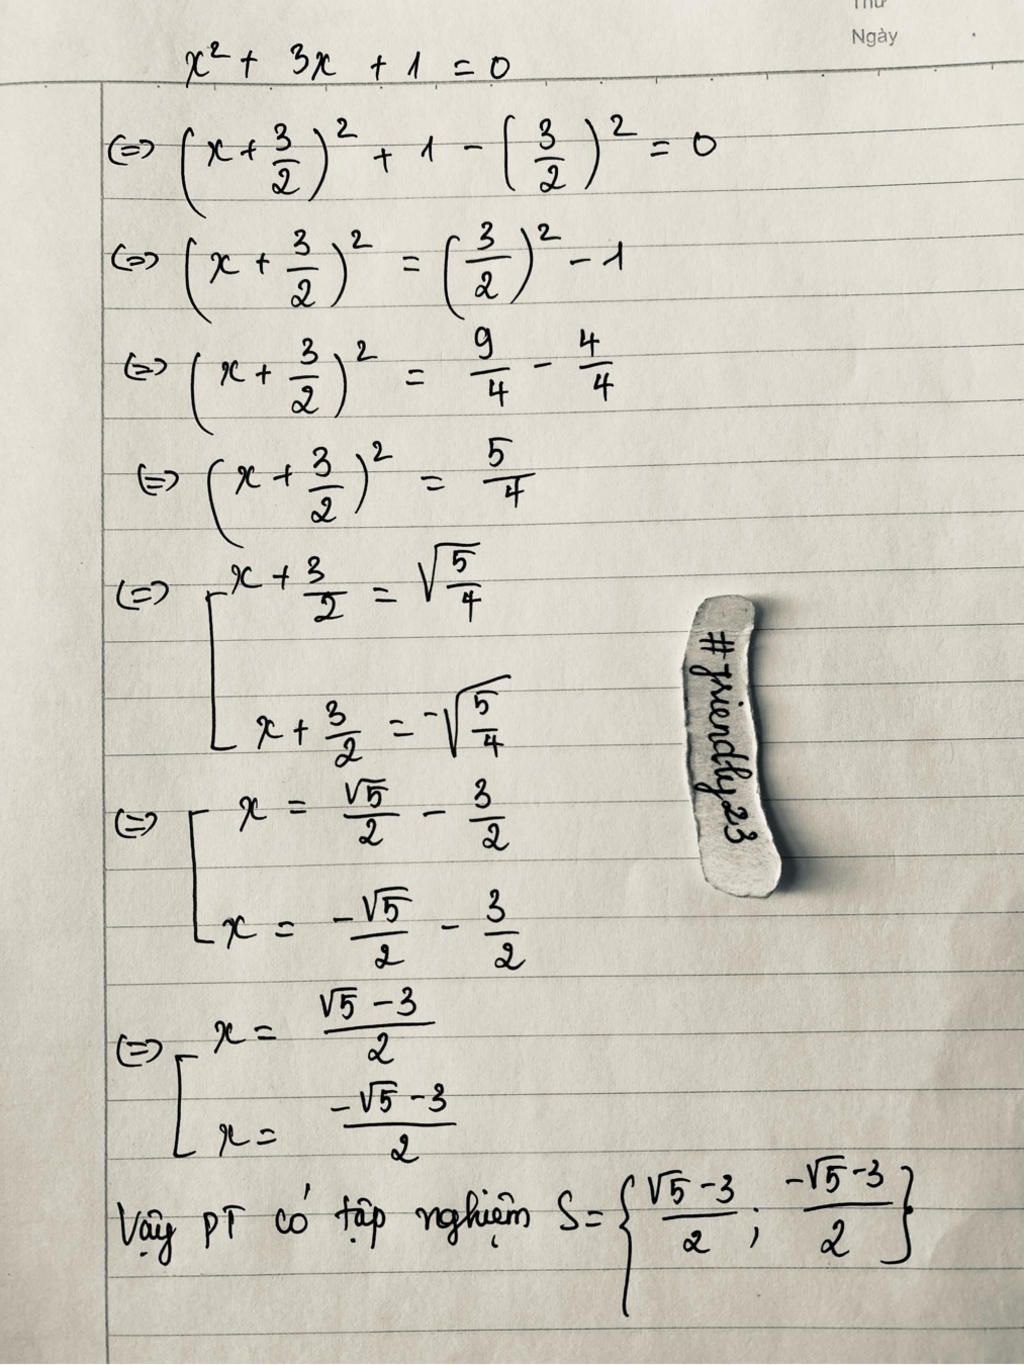 Thứ
Ngày
x² + 3x + 1 = 0
⇔ (x + 3/2)² + 1 - (3/2)² = 0
⇔ (x + 3/2)² = (3/2)² - 1
⇔ (x + 3/2)² = 9/4 - 4/4
⇔ (x + 3/2)² = 5/4
⇔ [ x + 3/2 = √(5/4)
x + 3/2 = -√(5/4)
⇔ [ x = √5/2 - 3/2
x = -√5/2 - 3/2
⇔ [ x = (√5 - 3)/2
x = (-√5 - 3)/2
Vậy PT có tập nghiệm S = {(√5 - 3)/2 ; (-√5 - 3)/2}
#friendly23